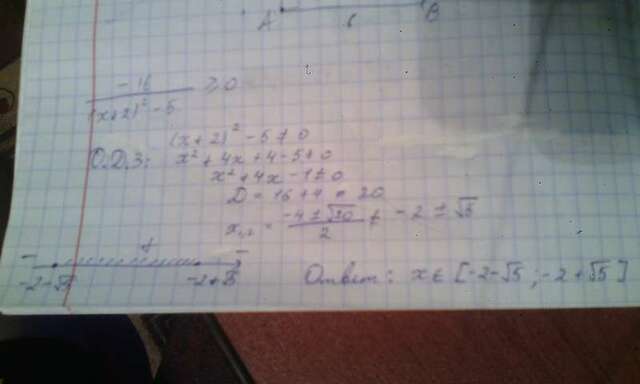 A 6 B
-16 / (x+2)² - 5 ≥ 0
(x+2)² - 5 ≠ 0
О.Д.З: x² + 4x + 4 - 5 ≠ 0
x² + 4x - 1 ≠ 0
D = 16 + 4 = 20
x₁,₂ = (-4 ± √20) / 2 ≠ -2 ± √5
- + -
-2-√5 -2+√5
Ответ: x ∈ [-2-√5 ; -2+√5]